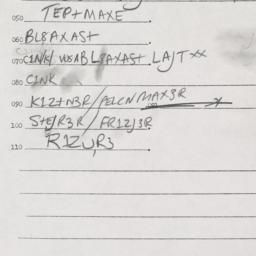 050 TEP+MAXE
060 BL8AXAS+
070 C1NK/ WSABL8AXAS+ LAJT xx
080 C1NK
090 K1Z+N3R/PELCNMAX3R
100 S+EJR3R/FR1ZJ3R
110 R1ZUR3